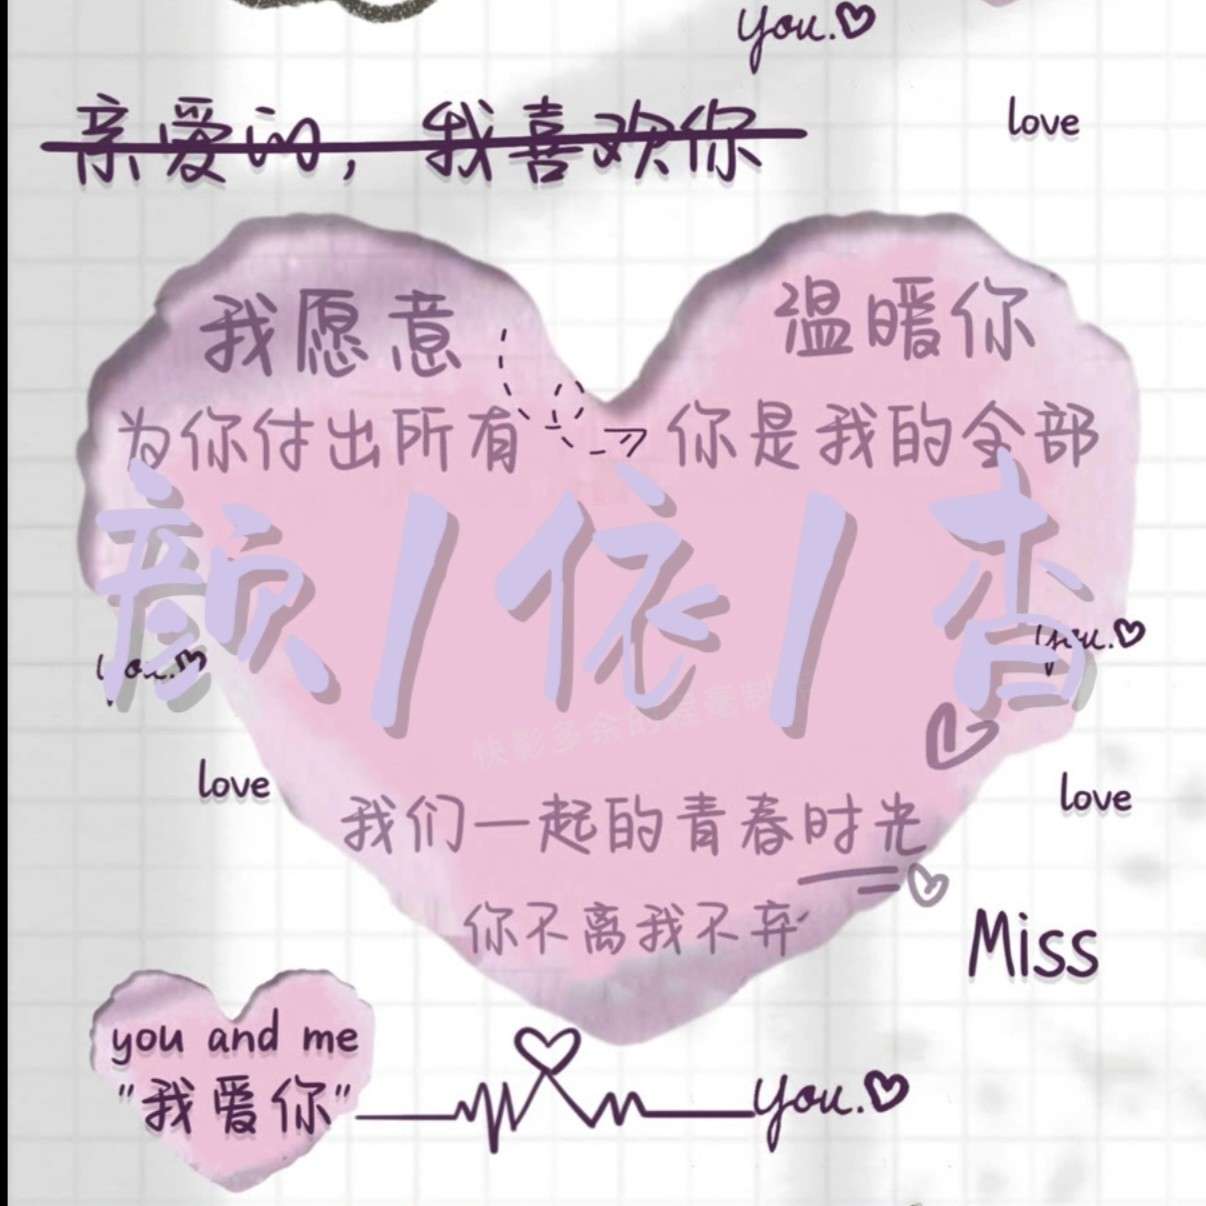 you.
love
亲爱的，我喜欢你
我愿意 温暖你
为你付出所有 你是我的全部
颜/依/杏
you. you.
love love
我们一起的青春时光
你不离我不弃
Miss
you and me
"我爱你"
you.